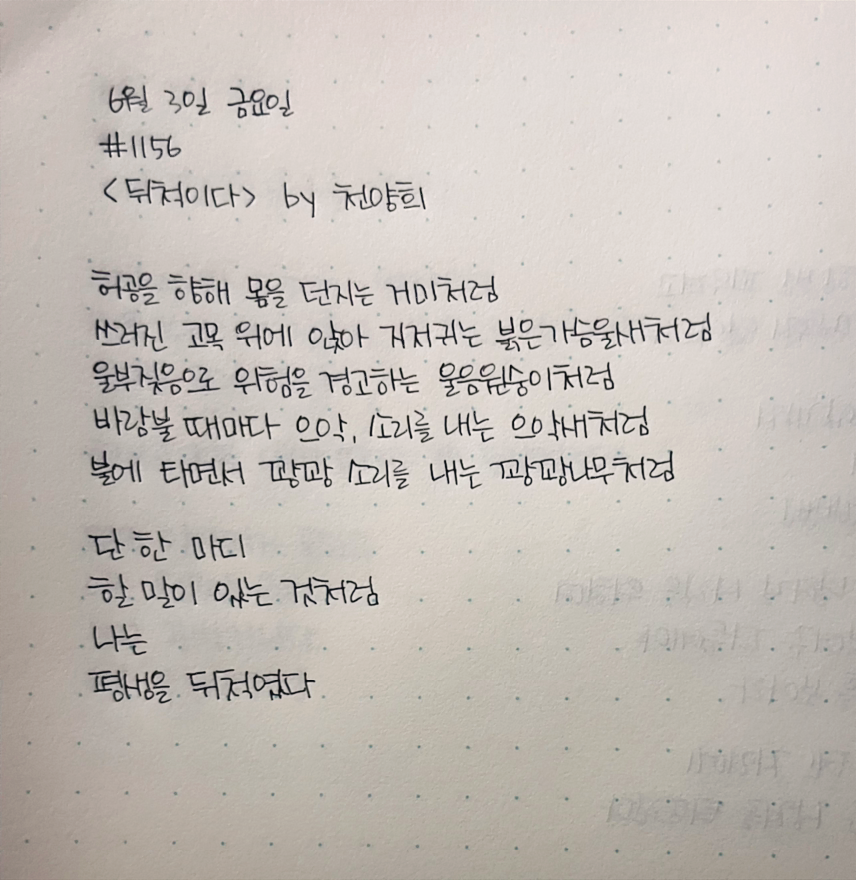 6월 30일 금요일
#1156
<뒤척이다> by 천양희
허공을 향해 몸을 던지는 거미처럼
쓰러진 고목 위에 앉아 지저귀는 붉은가슴울새처럼
울부짖음으로 위험을 경고하는 울음원숭이처럼
바람불 때마다 으악, 소리를 내는 으악새처럼
불에 타면서 꽝꽝 소리를 내는 꽝꽝나무처럼
단 한 마디
할 말이 있는 것처럼
나는
평생을 뒤척였다